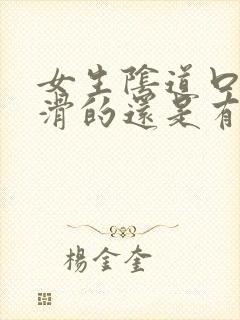 女生陰道口
滑的還是有
楊金奎